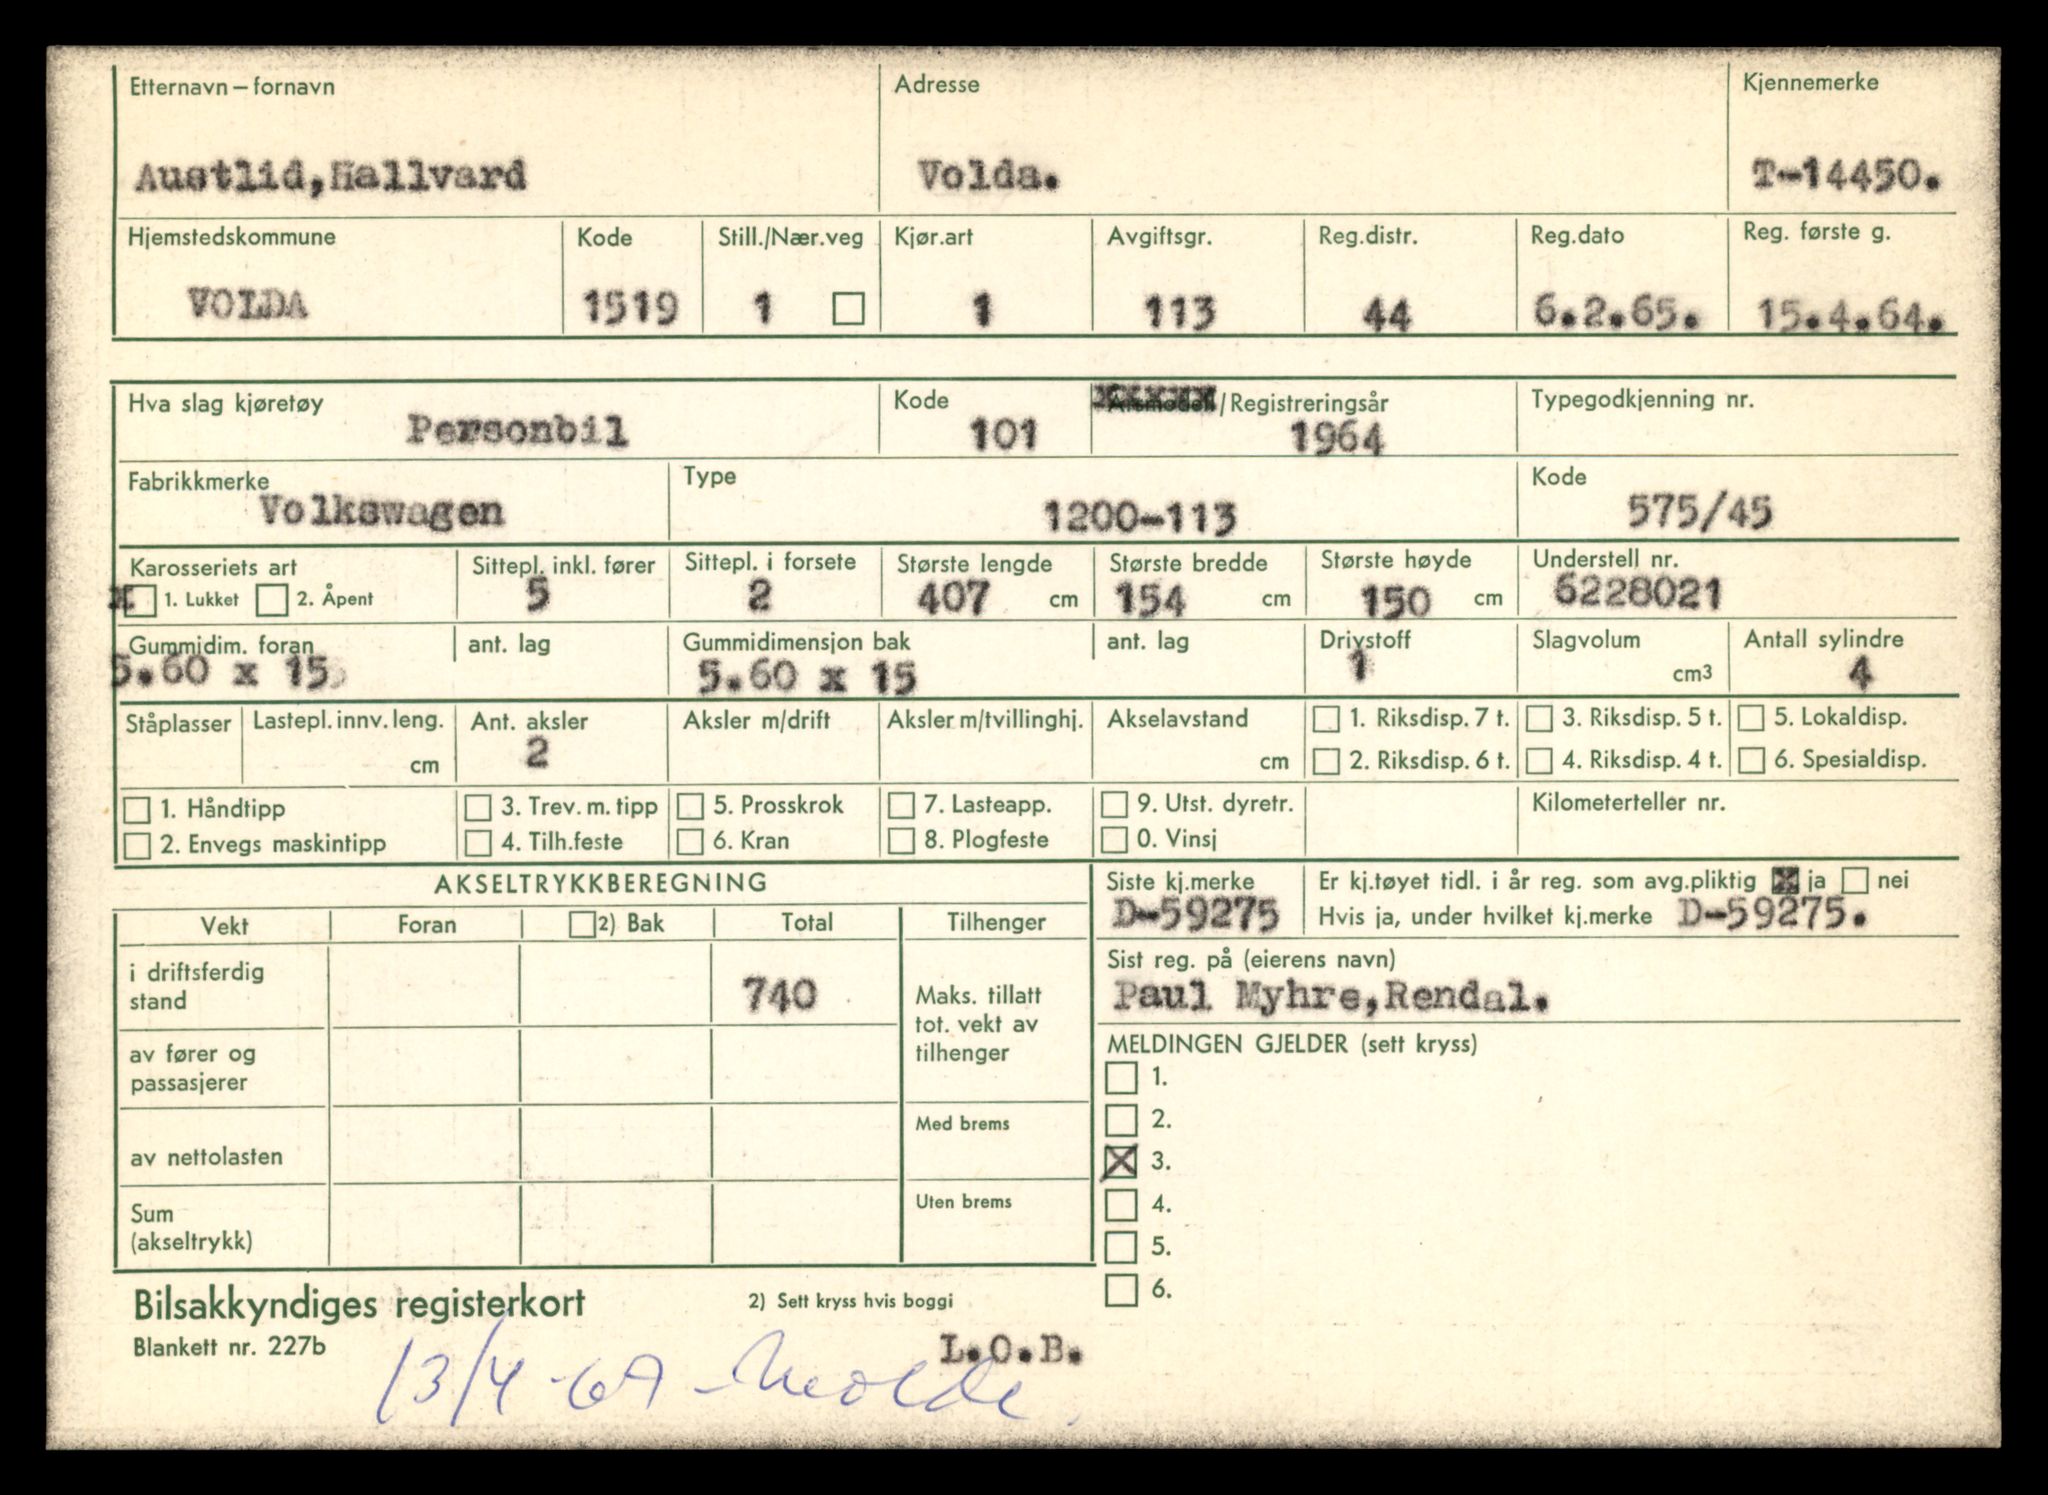 Etternavn – fornavn Adresse Kjennemerke
Austlid, Hallvard Volda. T-14450.
Hjemstedskommune Kode Still./Nær.veg Kjør.art Avgiftsgr. Reg.distr. Reg.dato Reg. første g.
VOLDA 1519 1 1 113 44 6.2.65. 15.4.64.
Hva slag kjøretøy Kode /Registreringsår Typegodkjenning nr.
Personbil 101 1964
Fabrikkmerke Type Kode
Volkswagen 1200-113 575/45
Karosseriets art Sittepl. inkl. fører Sittepl. i forsete Største lengde Største bredde Største høyde Understell nr.
x 1. Lukket 2. Åpent 5 2 407 cm 154 cm 150 cm 6228021
Gummidim. foran ant. lag Gummidimensjon bak ant. lag Drivstoff Slagvolum Antall sylindre
5.60 x 15 5.60 x 15 1 cm3 4
Ståplasser Lastepl. innv. leng. Ant. aksler Aksler m/drift Aksler m/tvillinghj. Akselavstand 1. Riksdisp. 7 t. 3. Riksdisp. 5 t. 5. Lokaldisp.
cm 2 cm 2. Riksdisp. 6 t. 4. Riksdisp. 4 t. 6. Spesialdisp.
1. Håndtipp 3. Trev. m. tipp 5. Prosskrok 7. Lasteapp. 9. Utst. dyretr. Kilometerteller nr.
2. Envegs maskintipp 4. Tilh.feste 6. Kran 8. Plogfeste 0. Vinsj
AKSELTRYKKBEREGNING
Vekt Foran 2) Bak Total Tilhenger
i driftsferdig
stand 740
Maks. tillatt
tot. vekt av
tilhenger
av fører og
passasjerer
Med brems
av nettolasten
Uten brems
Sum
(akseltrykk)
Siste kj.merke Er kj.tøyet tidl. i år reg. som avg.pliktig x ja nei
D-59275 Hvis ja, under hvilket kj.merke D-59275.
Sist reg. på (eierens navn)
Paul Myhre, Rendal.
MELDINGEN GJELDER (sett kryss)
1.
2.
x 3.
4.
5.
6.
Bilsakkyndiges registerkort 2) Sett kryss hvis boggi
Blankett nr. 227b L.O.B.
13/4-67 - Molde.